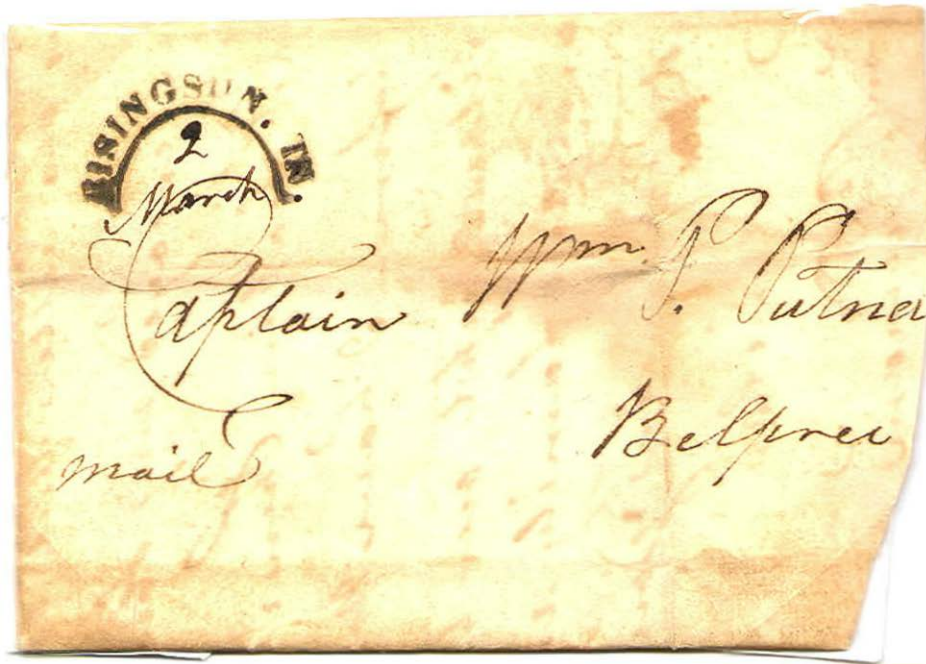 RISINGSUN. IN.
2
March
Captain Wm. P. Putna
Belpree
mail